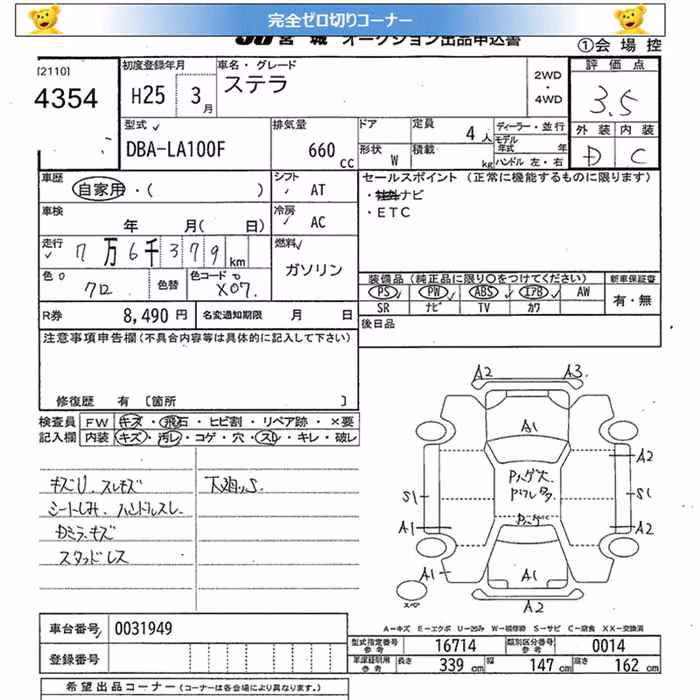 完全ゼロ切りコーナー
JU 宮城 オークション出品申込書
①会場控
[2110]
4354
初度登録年月
H25 3月
車名・グレード
ステラ
2WD
・
4WD
評価点
3.5
外装 内装
D C
型式
DBA-LA100F
排気量
660 cc
ドア
形状 W
定員 4人
積載 kg
ディーラー・並行
モデル年式 年
ハンドル 左・右
車歴
自家用・( )
シフト
AT
車検
年 月( 日)
冷房
AC
走行
7万6千379km
燃料
ガソリン
色
クロ
色替
色コード
X07.
R券 8,490円
名変通知期限 月 日
セールスポイント(正常に機能するものに限ります)
・社外ナビ
・ETC
装備品(純正品に限り○をつけてください)
PS PW ABS エアB AW
SR ナビ TV カワ
新車保証書
有・無
後日品
注意事項申告欄(不具合内容等は具体的に記入して下さい)
修復歴 有〔箇所 〕
検査員記入欄
FW キズ・飛石・ヒビ割・リペア跡・×要
内装 キズ・汚レ・コゲ・穴・スレ・キレ・破レ
キズU. スレキズ
シートしみ. ハンドルスレ.
Dミラーキズ
スタッドレス
下廻りS.
A2 A3
A1
A2
S1
A1
S1
A2
A1
A1
A2
スペア
A-キズ E-エクボ U-凹み W-補修跡 S-サビ C-腐食 XX-交換済
車台番号 0031949
登録番号
型式指定番号 参考 16714
類別区分番号 参考 0014
車庫証明用 参考 長さ 339cm 幅 147cm 高さ 162cm
希望出品コーナー(コーナーは各会場により異なります。)